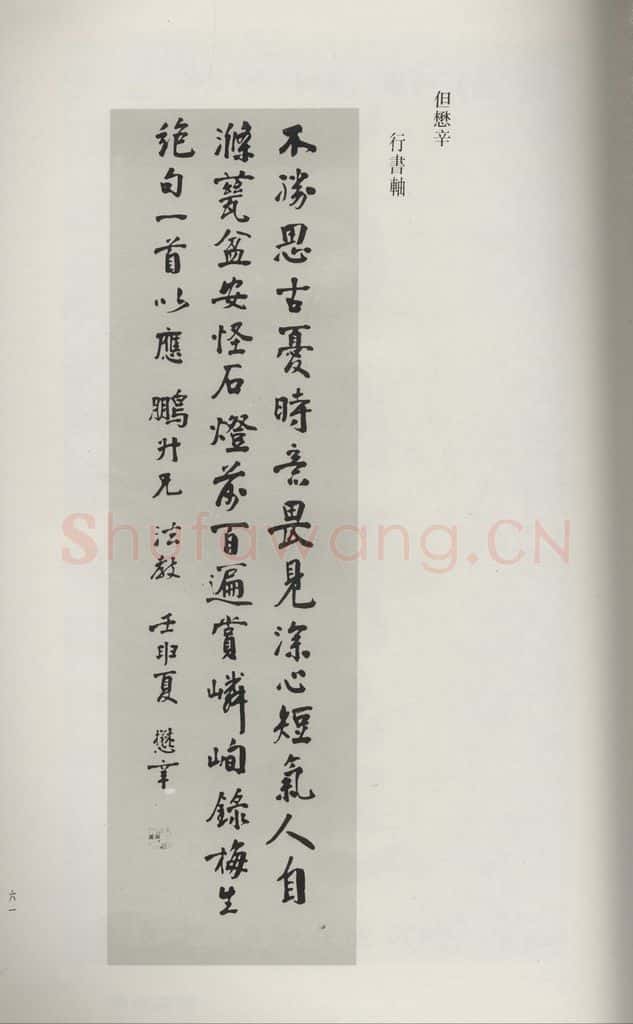 但懋辛
行書軸
不勝思古憂時意畏見深心短氣人自
滌甆盆安怪石燈前百遍賞嶙峋錄梅生
絕句一首以應 鵬升兄 法教 壬申夏 懋辛
六一
Shufawang.CN